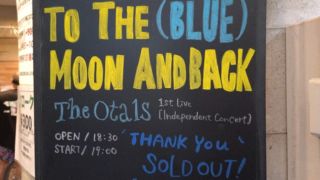 TO THE (BLUE)
MOON AND BACK
The Otals 1st Live
[Independent Concert]
OPEN / 18:30
START / 19:00
'THANK YOU'
SOLD OUT!